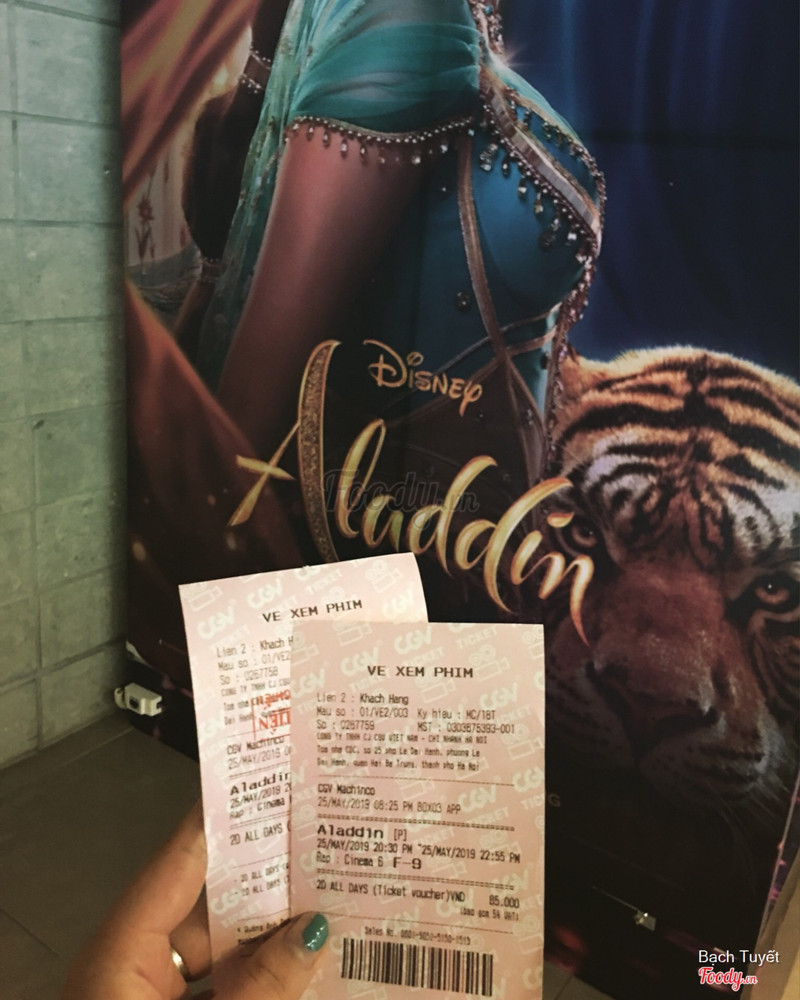 Disney
Aladdin
Foody.vn
VE XEM PHIM
Lien 2 : Khach H
Mau so : 01/VE2
So : 0267758
CONG TY TNHH CJ CGV
Toa nha
Dai Hanh
CGV Machinco
25/MAY/2019
Aladdin
25/MAY/2019 20
Rap : Cinema
2D ALL DAYS (
- 2D ALL DAYS
- 2D ALL DAYS
CGV TICKET
VE XEM PHIM
Lien 2 : Khach Hang
Mau so : 01/VE2/003 Ky hieu : MC/18T
So : 0267759 MST : 0303675393-001
CONG TY TNHH CJ CGV VIET NAM - CHI NHANH HA NOI
Toa nha CDC, so 25 pho Le Dai Hanh, phuong Le
Dai Hanh, quan Hai Ba Trung, thanh pho Ha Noi
CGV Machinco
25/MAY/2019 08:25 PM BOX03 APP
Aladdin [P]
25/MAY/2019 20:30 PM ~25/MAY/2019 22:55 PM
Rap : Cinema 6 F-9
2D ALL DAYS (Ticket voucher)VND 85.000
(bao gom 5% GTGT)
Sales No.
Bạch Tuyết
Foody.vn